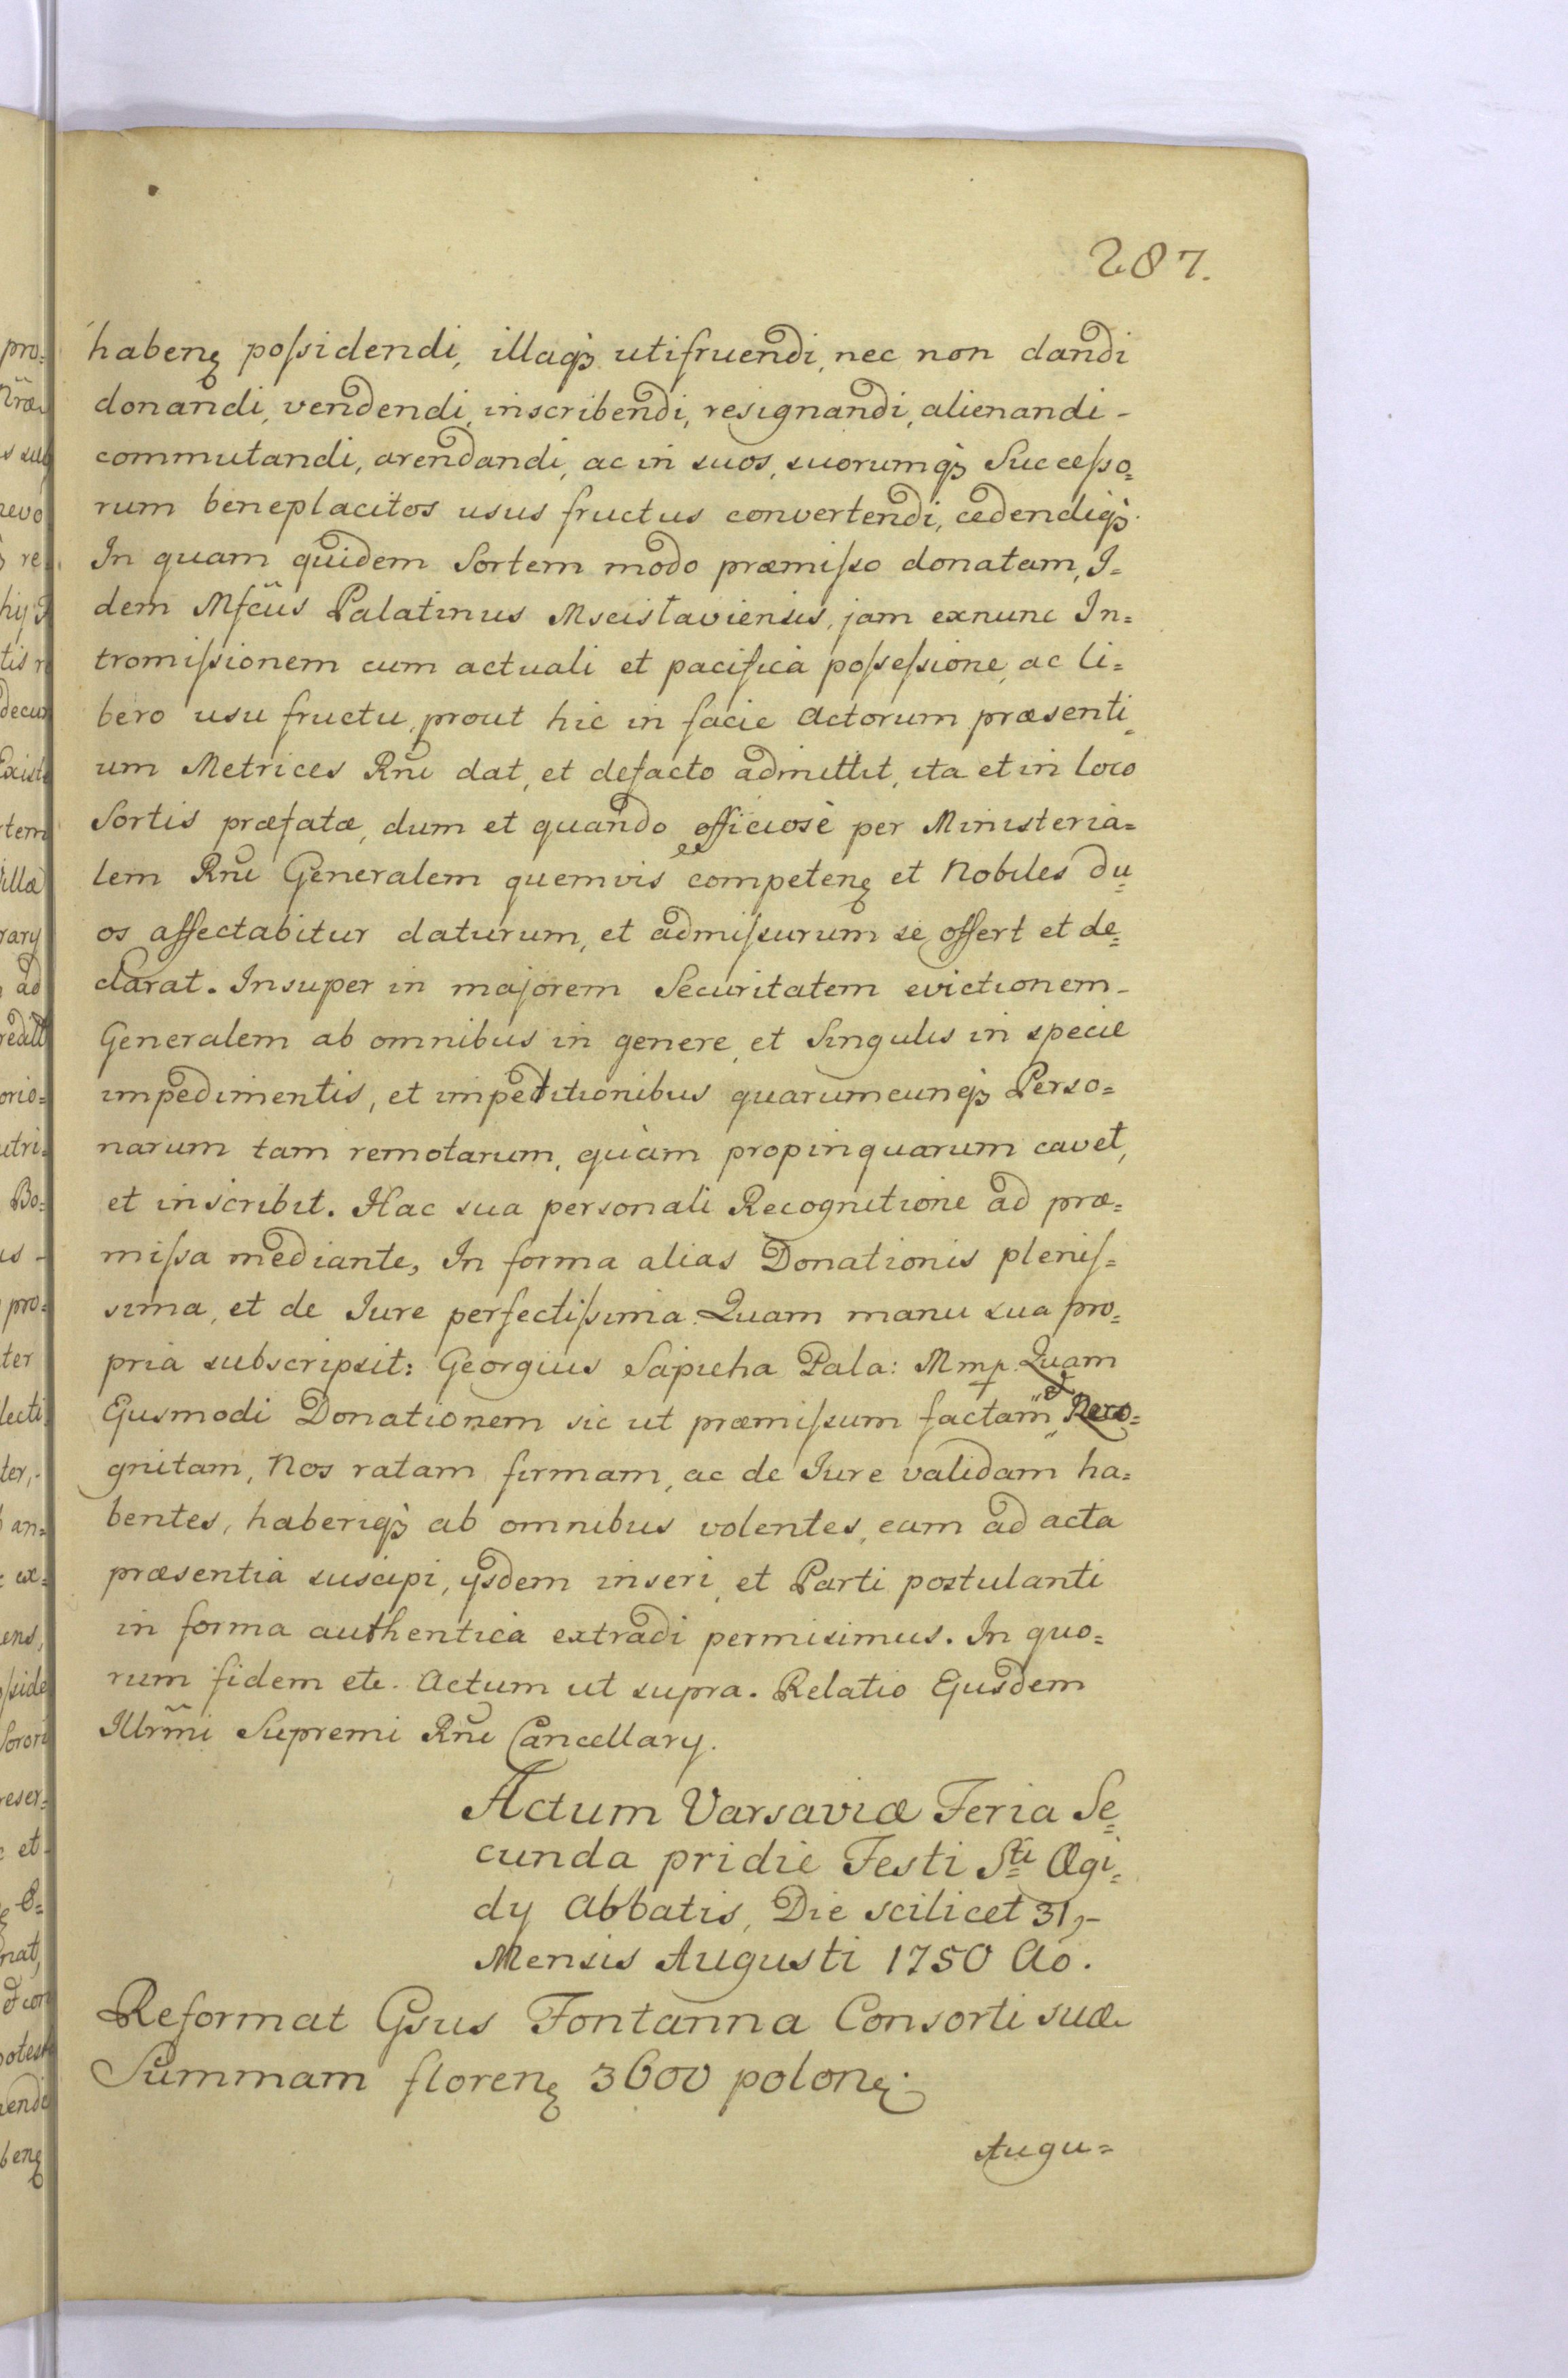 287.
habenę poſsidendi, illaqꝫ utifruendi, nec non dandi
donandi, vendendi, inscribendi, resignandi, alienandi -
commutandi, arendandi, ac in suos, suorumqꝫ Succeſso=
rum beneplacitos usus fructus convertendi, cedendiqꝫ.
In quam quidem Sortem modo præmiſso donatam, I=
dem Mfcus Palatinus Mscislaviensis, jam exnunc In=
tromiſsionem cum actuali et pacificà poſseſsione, ac li=
bero usu fructu, prout hic in facie Actorum præsenti=
um Metrices Rni dat, et defacto admittit, ita et in loco
Sortis præfatæ, dum et quando officiosè per Ministeria=
lem Rni Generalem quemvis competenę et Nobiles du=
os affectabitur daturum, et admiſsurum se offert et de=
clarat. Insuper in majorem Securitatem evictionem -
Generalem ab omnibus in genere, et Singulis in specie
impedimentis, et impetitionibus quarumcunqꝫ Perso=
narum tam remotarum, quàm propinquarum cavet,
et inscribit. Hac sua personali Recognitione ad præ=
miſsa mediante, In forma alias Donationis pleniſ=
sima, et de Iure perfectiſsima. Quam manu sua pro=
pria subscripsit: Georgius Sapieha Pala: Mmp. Quam
Ejusmodi Donationem sic ut præmiſsum factam et Reco=
gnitam, Nos ratam, firmam, ac de Iure validam ha=
bentes, haberiqꝫ ab omnibus volentes, eam ad acta
præsentia suscipi, ijsdem inseri, et Parti postulanti
in forma authenticà extradi permisimus. In quo=
rum fidem etc. Actum ut supra. Relatio Ejusdem
Illrmi Supremi Rni Cancellary.
Actum Varsaviæ Feria Se=
cunda pridie Festi Sti Ægi=
dy Abbatis, Die scilicet 31, -
Mensis Augusti 1750 Ao.
Reformat Gsus Fontanna Consorti suæ
Summam florenę 3600 polonę.
Augu=